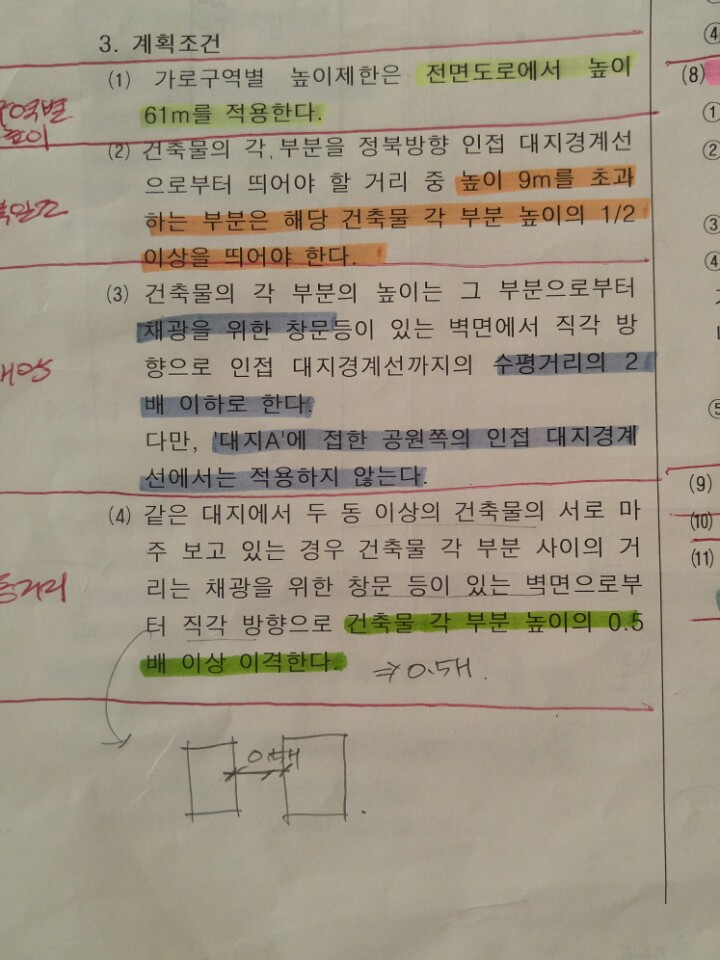 3. 계획조건
(1) 가로구역별 높이제한은 전면도로에서 높이
61m를 적용한다.
(2) 건축물의 각 부분을 정북방향 인접 대지경계선
으로부터 띄어야 할 거리 중 높이 9m를 초과
하는 부분은 해당 건축물 각 부분 높이의 1/2
이상을 띄어야 한다.
(3) 건축물의 각 부분의 높이는 그 부분으로부터
채광을 위한 창문등이 있는 벽면에서 직각 방
향으로 인접 대지경계선까지의 수평거리의 2
배 이하로 한다.
다만, '대지A'에 접한 공원쪽의 인접 대지경계
선에서는 적용하지 않는다.
(4) 같은 대지에서 두 동 이상의 건축물의 서로 마
주 보고 있는 경우 건축물 각 부분 사이의 거
리는 채광을 위한 창문 등이 있는 벽면으로부
터 직각 방향으로 건축물 각 부분 높이의 0.5
배 이상 이격한다. ⇒ 0.5H.
④
(8)
①
②
③
④
⑤
(9)
(10)
(11)